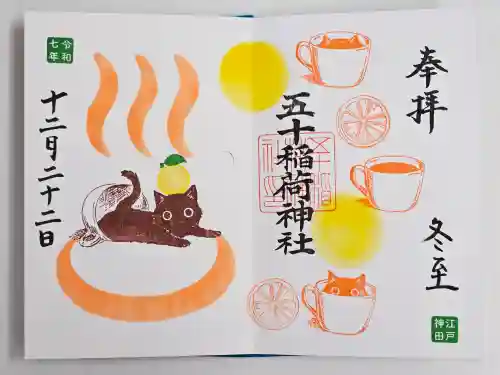 奉拝
冬至
江戸
神田
五十稲荷神社
令和
七年
十二月二十二日